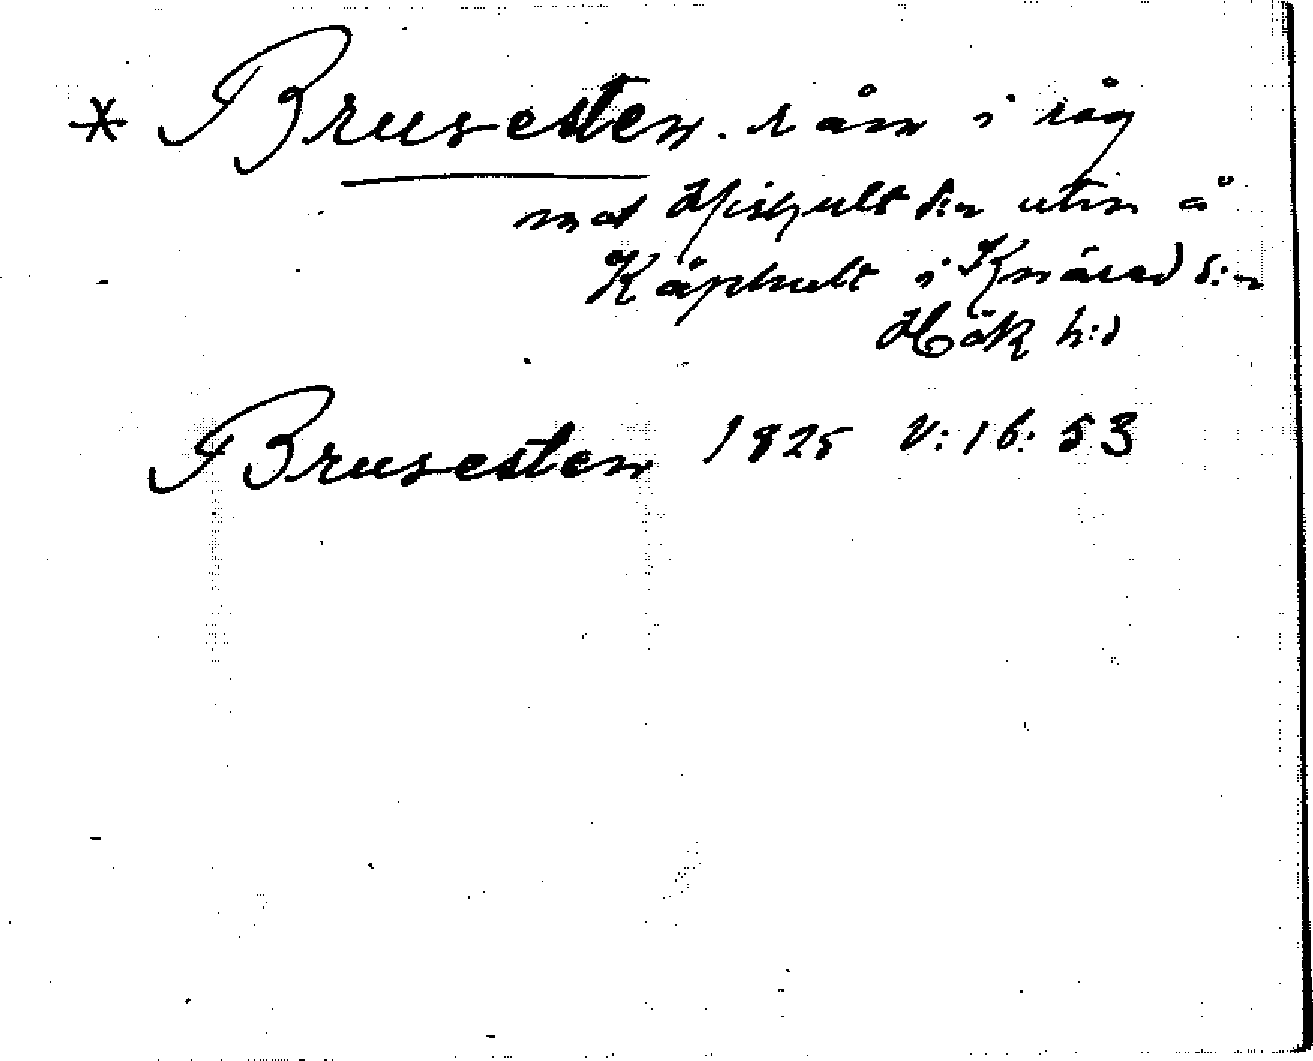 * Brusesten. r ån i råg
mot Hishult s:n utm å
Kåphult i Knäred s:n
Hök h:d
Brusesten 1825 V:16:53